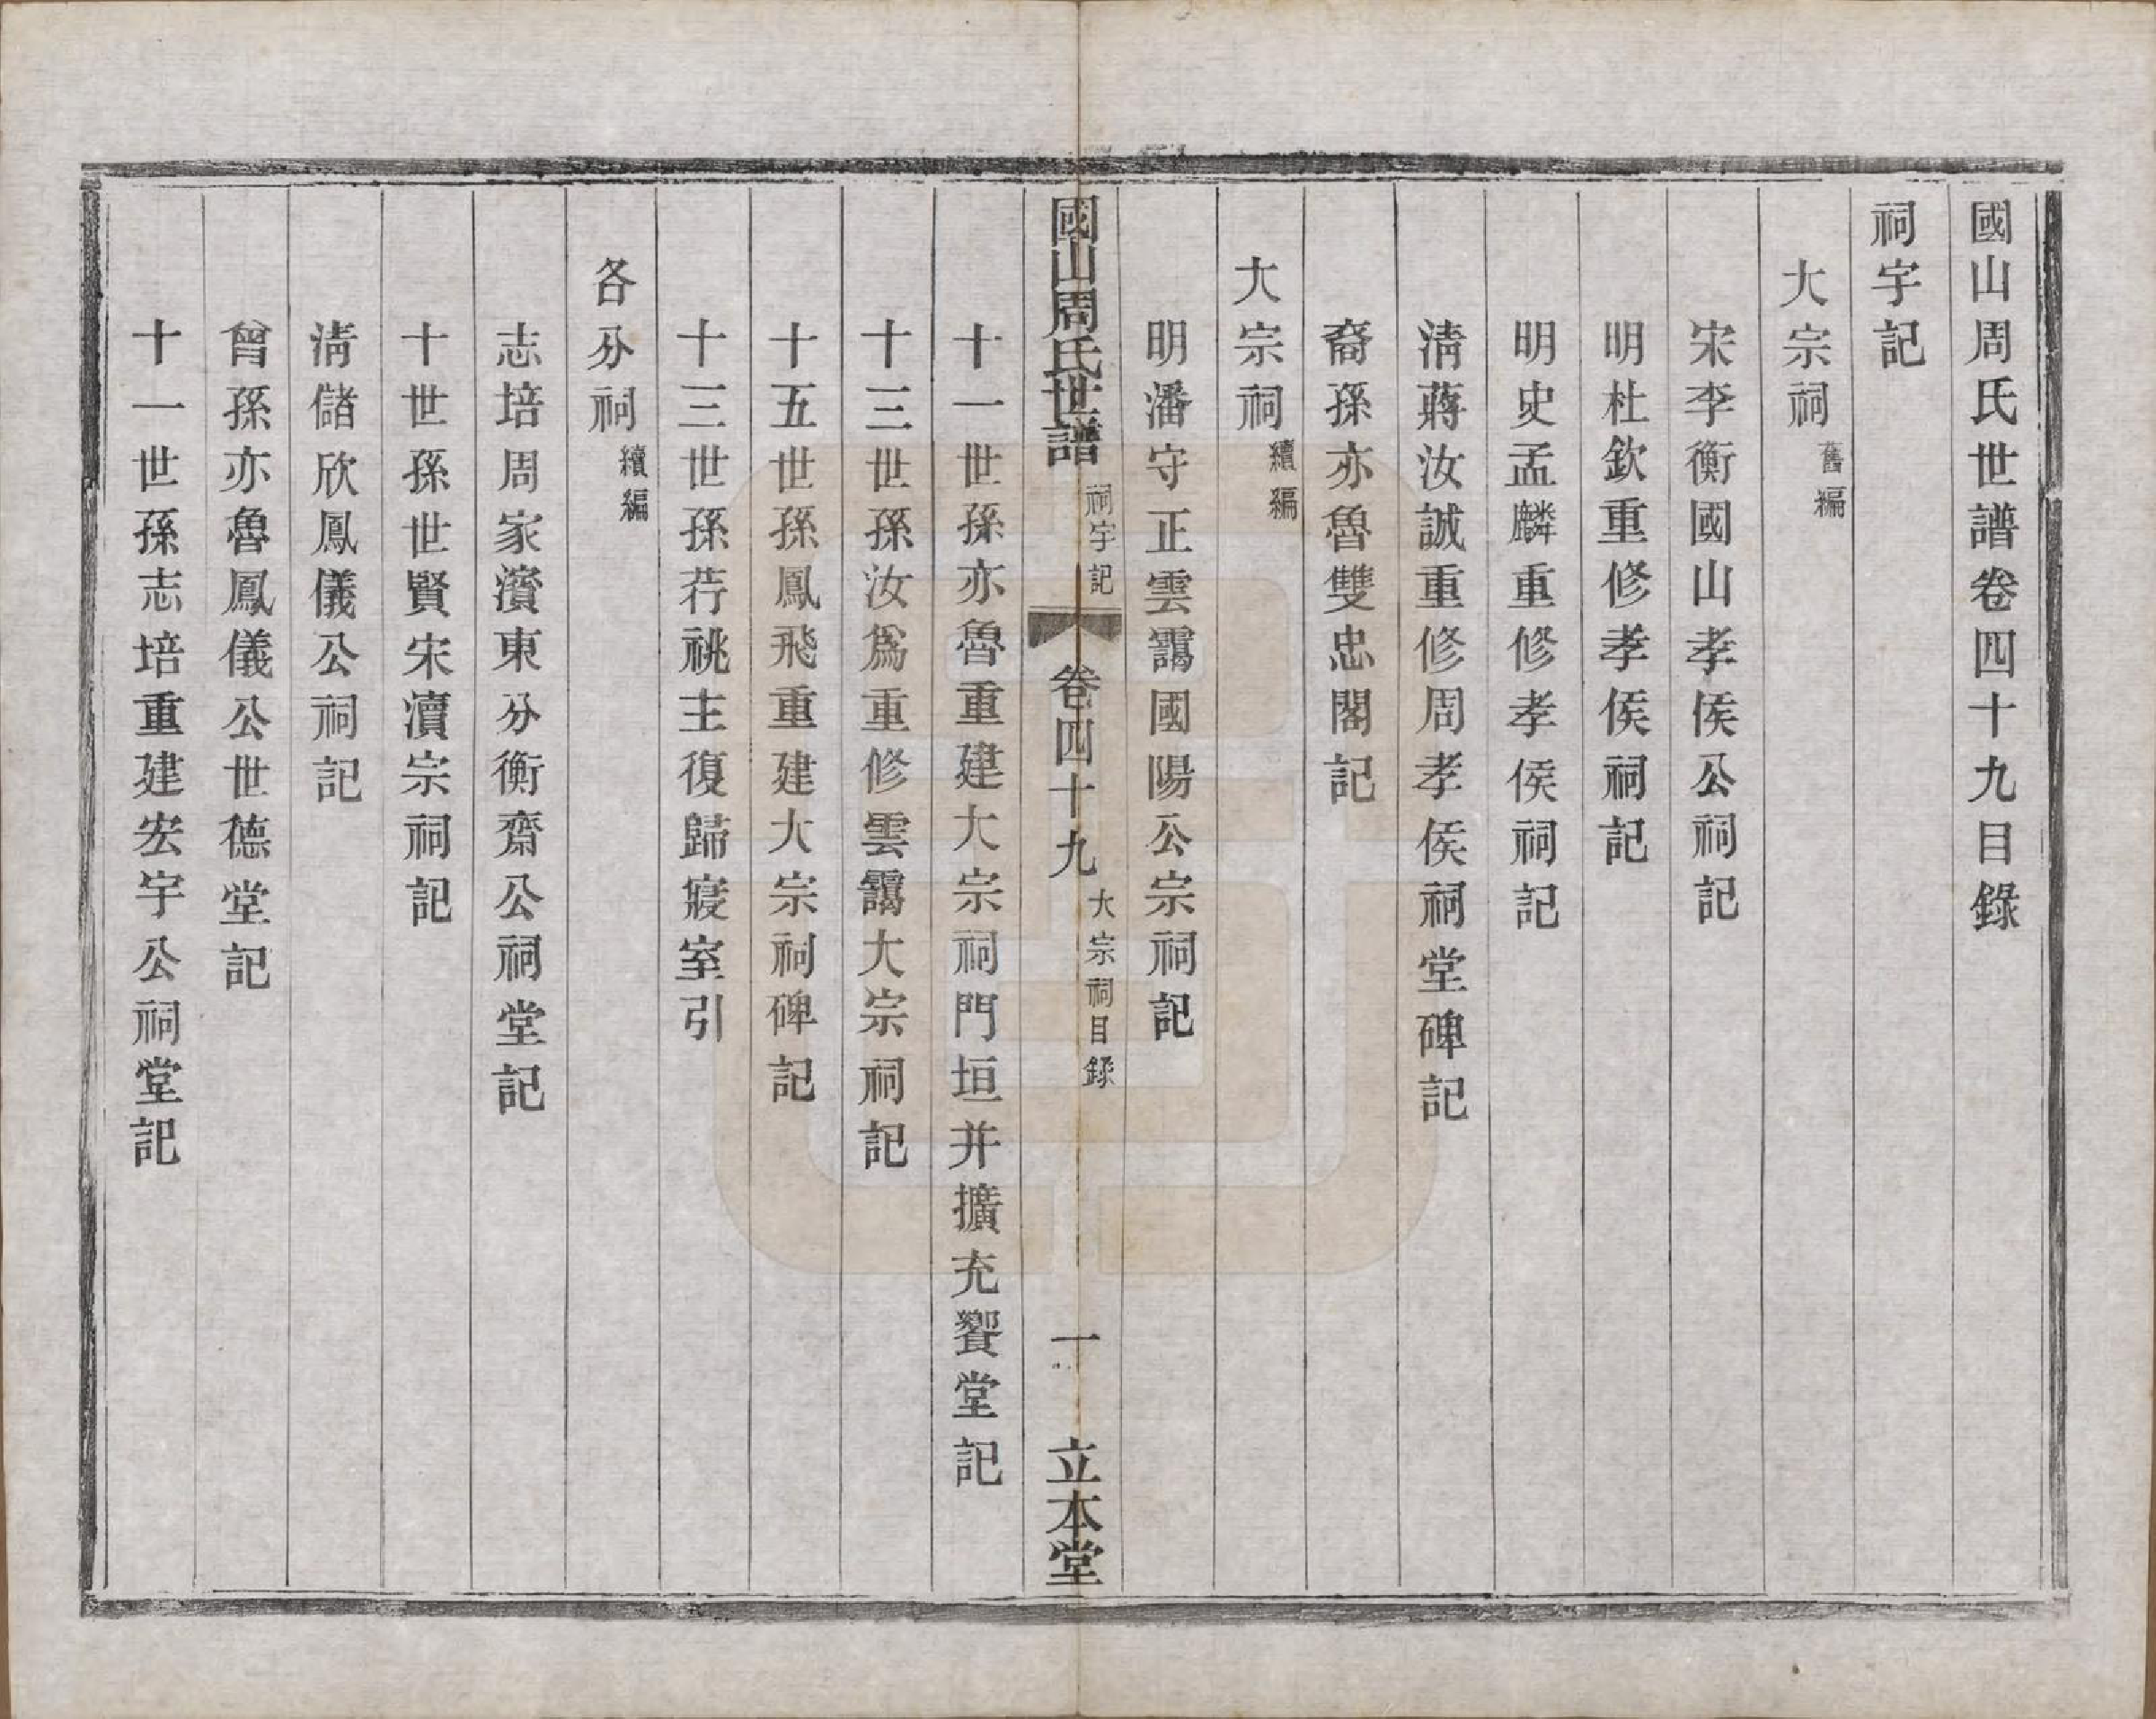 國山周氏世譜卷四十九目錄
祠宇記
大宗祠 舊編
宋李衡國山孝侯公祠記
明杜欽重修孝侯祠記
明史孟麟重修孝侯祠記
清蔣汝誠重修周孝侯祠堂碑記
裔孫亦魯雙忠閣記
大宗祠 續編
明潘守正雲靄國陽公宗祠記
國山周氏世譜 祠宇記 卷四十九 大宗祠目錄 一 立本堂
十一世孫亦魯重建大宗祠門垣并擴充饗堂記
十三世孫汝爲重修雲靄大宗祠記
十五世孫鳳飛重建大宗祠碑記
十三世孫荇祧主復歸寢室引
各分祠 續編
志培周家濱東分衡齋公祠堂記
十世孫世賢宋瀆宗祠記
清儲欣鳳儀公祠記
曾孫亦魯鳳儀公世德堂記
十一世孫志培重建宏宇公祠堂記